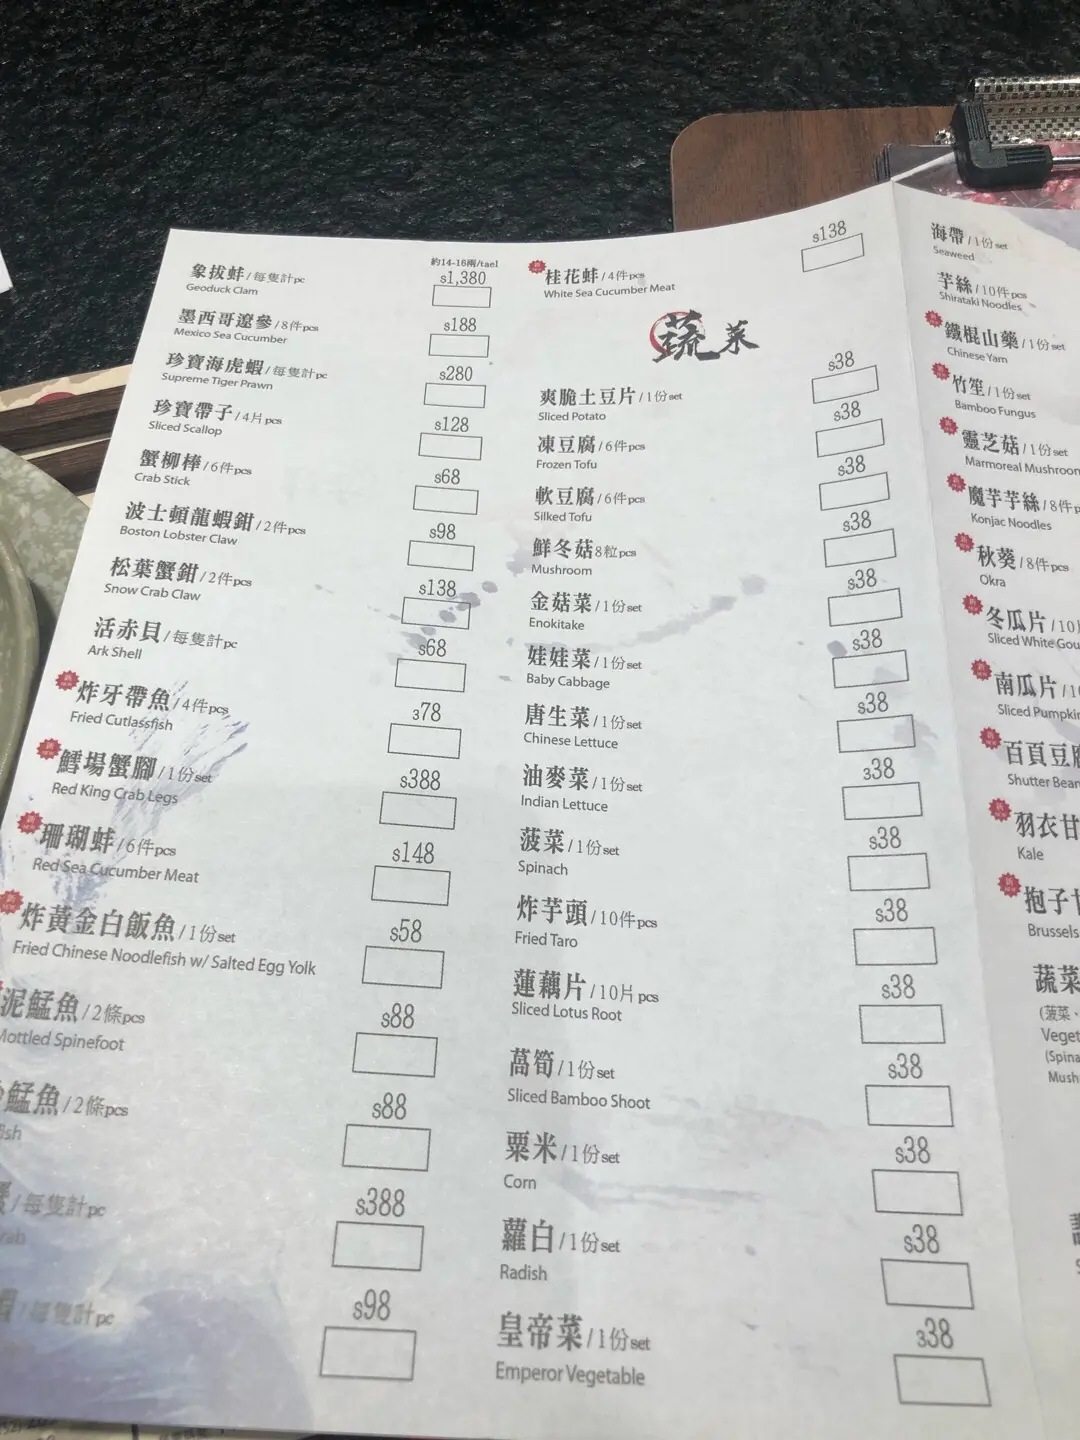 約14-16兩/tael
象拔蚌/每隻計pc $1,380
Geoduck Clam
墨西哥遼參/8件pcs $188
Mexico Sea Cucumber
珍寶海虎蝦/每隻計pc $280
Supreme Tiger Prawn
珍寶帶子/4片pcs $128
Sliced Scallop
蟹柳棒/6件pcs $68
Crab Stick
波士頓龍蝦鉗/2件pcs $98
Boston Lobster Claw
松葉蟹鉗/2件pcs $138
Snow Crab Claw
活赤貝/每隻計pc $68
Ark Shell
炸牙帶魚/4件pcs $78
Fried Cutlassfish
鱈場蟹腳/1份set $388
Red King Crab Legs
珊瑚蚌/6件pcs $148
Red Sea Cucumber Meat
炸黃金白飯魚/1份set $58
Fried Chinese Noodlefish w/ Salted Egg Yolk
泥鯭魚/2條pcs $88
Mottled Spinefoot
鯭魚/2條pcs $88
fish
/每隻計pc $388
rab
/每隻計pc $98
桂花蚌/4件pcs $138
White Sea Cucumber Meat
蔬菜
爽脆土豆片/1份set $38
Sliced Potato
凍豆腐/6件pcs $38
Frozen Tofu
軟豆腐/6件pcs $38
Silked Tofu
鮮冬菇8粒pcs $38
Mushroom
金菇菜/1份set $38
Enokitake
娃娃菜/1份set $38
Baby Cabbage
唐生菜/1份set $38
Chinese Lettuce
油麥菜/1份set $38
Indian Lettuce
菠菜/1份set $38
Spinach
炸芋頭/10件pcs $38
Fried Taro
蓮藕片/10片pcs $38
Sliced Lotus Root
萵筍/1份set $38
Sliced Bamboo Shoot
粟米/1份set $38
Corn
蘿白/1份set $38
Radish
皇帝菜/1份set $38
Emperor Vegetable
海帶/1份set
Seaweed
芋絲/10件pcs
Shirataki Noodles
鐵棍山藥/1份set
Chinese Yam
竹笙/1份set
Bamboo Fungus
靈芝菇/1份set
Marmoreal Mushroom
魔芋芋絲/8件p
Konjac Noodles
秋葵/8件pcs
Okra
冬瓜片/10
Sliced White Gou
南瓜片/1
Sliced Pumpkin
百頁豆腐
Shutter Bean
羽衣甘
Kale
抱子甘
Brussels
蔬菜
(菠菜、
Veget
(Spina
Mush